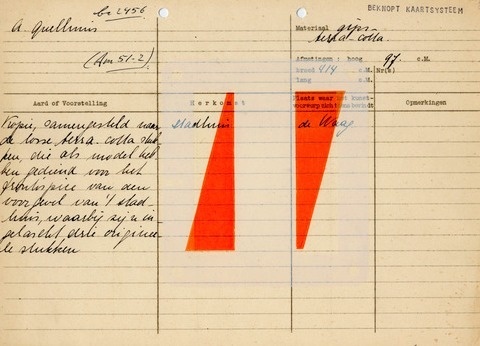 br 2456
BEKNOPT KAARTSYSTEEM
A. Quellinus
Materiaal gips-
terra-cotta.
(Am 51-2)
Afmetingen: hoog 97. c.M.
breed 414 c.M. Nr(s)
lang c.M.
Aard of Voorstelling
Herkomst
Plaats waar het kunst-
voorwerp zich bevindt
Opmerkingen
Kopie, samengesteld naar
de losse terra-cotta stuk-
ken, die als model heb-
ben gediend voor het
frontispice van den
voorgevel van 't stad-
huis, waarbij zijn in-
gelascht drie origineele
stukken
stadhuis
de Waag